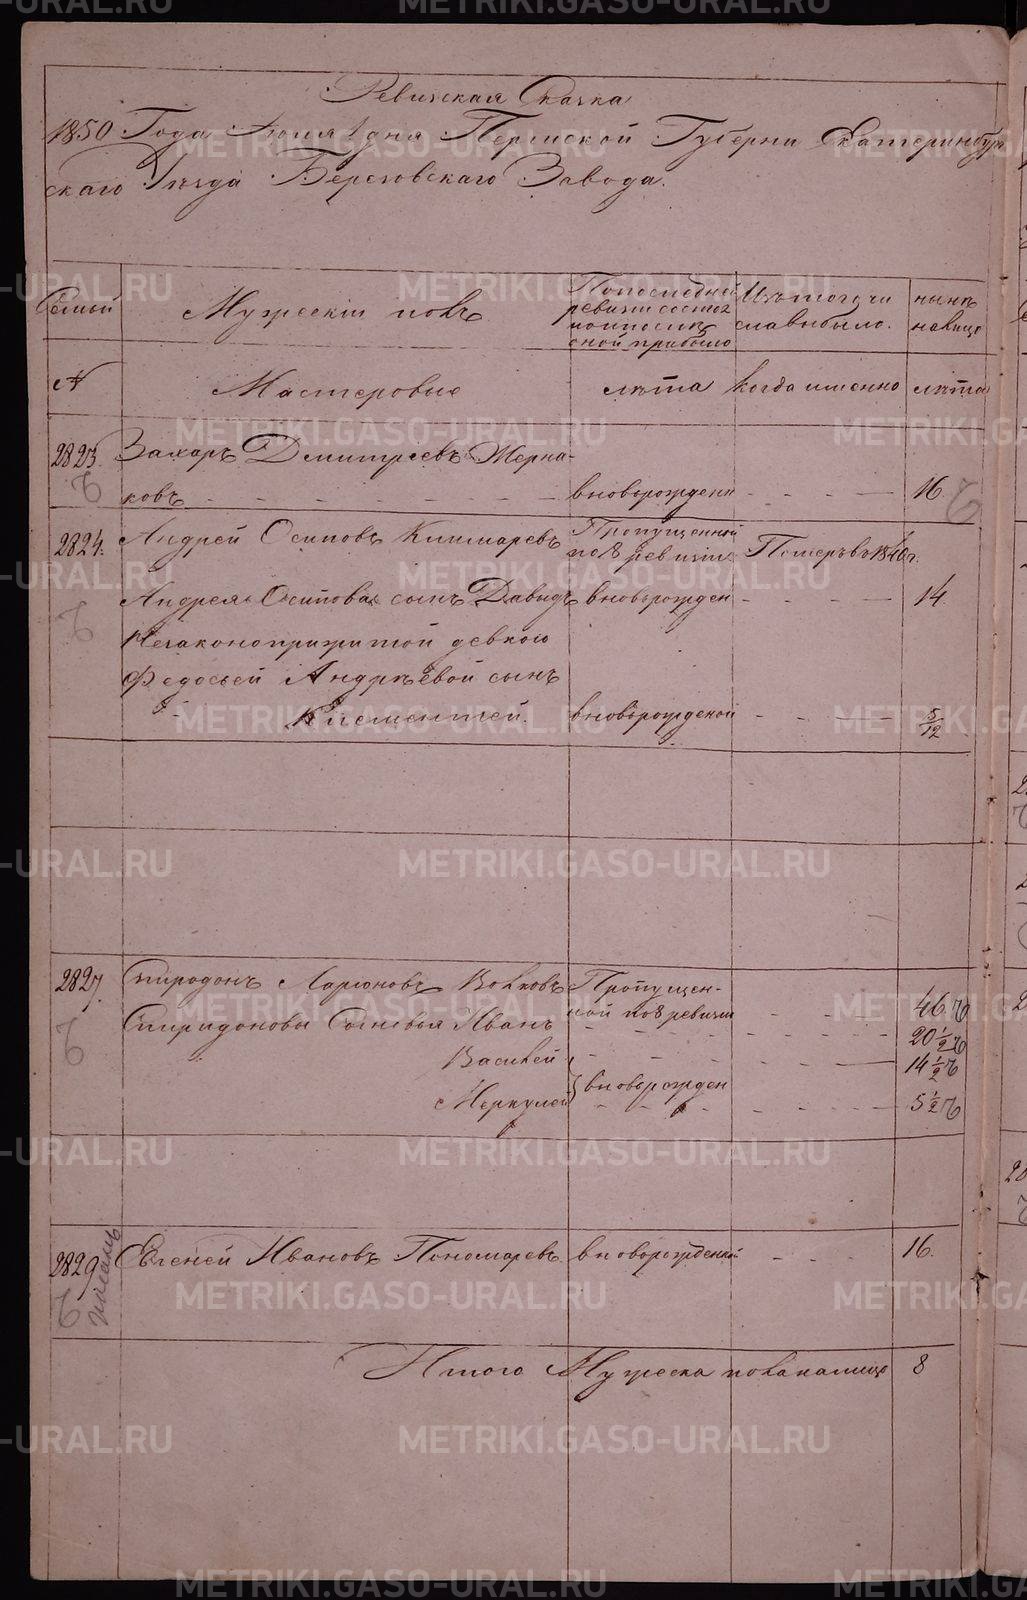 Ревизская Сказка
1850 Года Июля 1 дня Пермской Губерни Екатеринбур
скаго Уезда Березовскаго Завода.
Семьи
Мужескій полъ
По последней
ревизіи состоя
ло и после
оной прибыло
Изъ того чи
сла выбыло.
нынѣ
на лицо
№
Мастеровые
лѣта
когда именно
лѣта
2823.
Захаръ Дмитріевъ Жерна-
ковъ
вновьрожденн
16
2824.
Андрей Осиповъ Кишкаревъ
Пропущенной
по 8 ревизіи
Померъ въ 1840 г.
Андрея Осипова сынъ Давыдъ
вновьрожден
14
Незаконоприжитой девкою
Федосьей Андрѣевой сынъ
Климентей.
вновьрожденой
5/12
2827.
Спиродонъ Ларіоновъ Волковъ
Пропущен-
ной по 8 ревизіи
46
Спиридоновы Сыновья Иванъ
20 1/2
Василей
14 1/2
вновьрожден
Меркулей
5 1/2
2829
Евгеней Ивановъ Пономаревъ
вновьрожденной
16.
Итого Мужеска пола налицо
8
METRIKI.GASO-URAL.RU